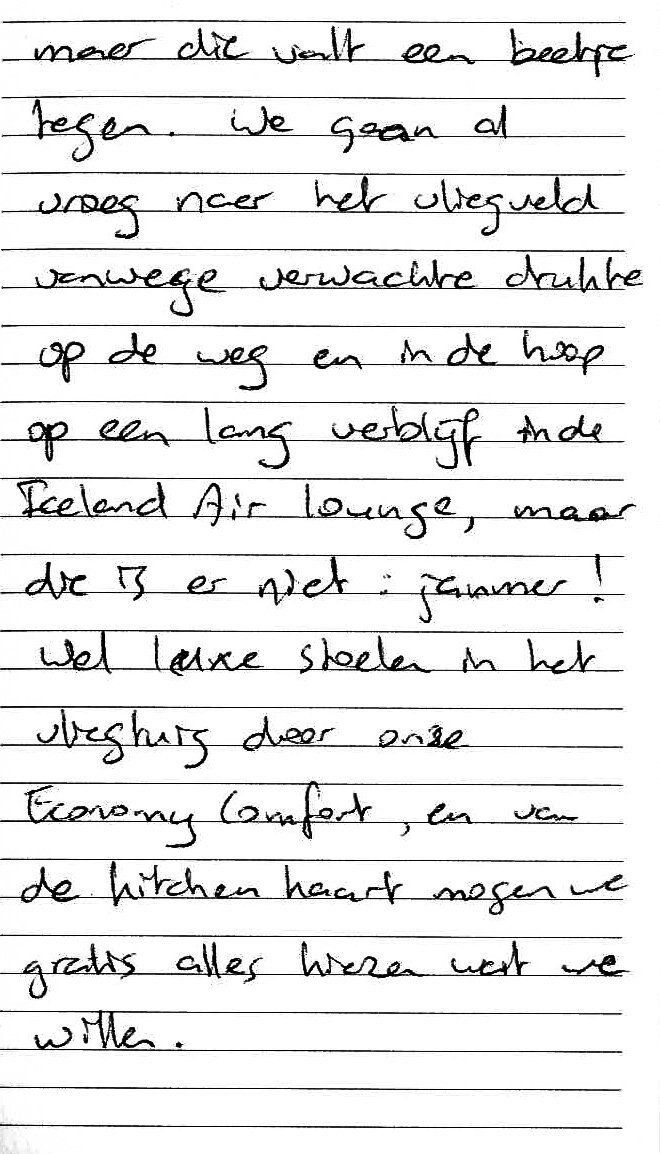 maar die valt een beetje
tegen. We gaan al
vroeg naar het vliegveld
vanwege verwachte drukte
op de weg en in de hoop
op een lang verblijf in de
Iceland Air lounge, maar
die is er niet : jammer!
Wel luxe stoelen in het
vliegtuig door onze
Economy Comfort, en van
de kitchen kaart mogen we
gratis alles kiezen wat we
willen.